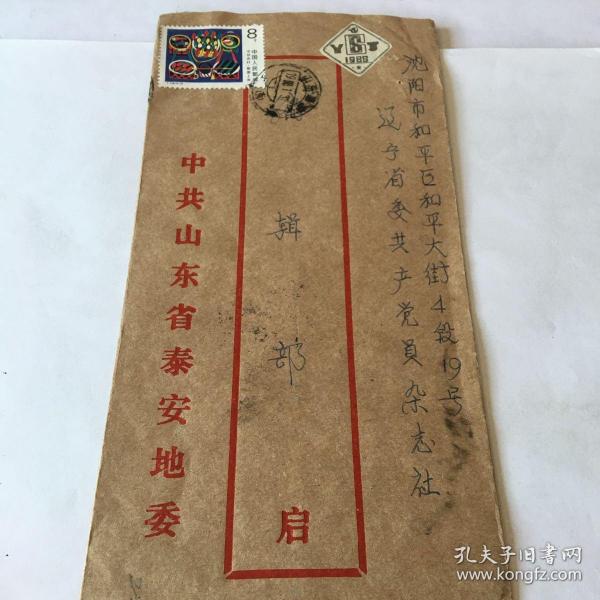 沈阳市和平区和平大街4段19号
辽宁省委共产党员杂志社
辑部
启
中共山东省泰安地委
8分
中国人民邮政
1989
孔夫子旧书网
www.kongfz.com